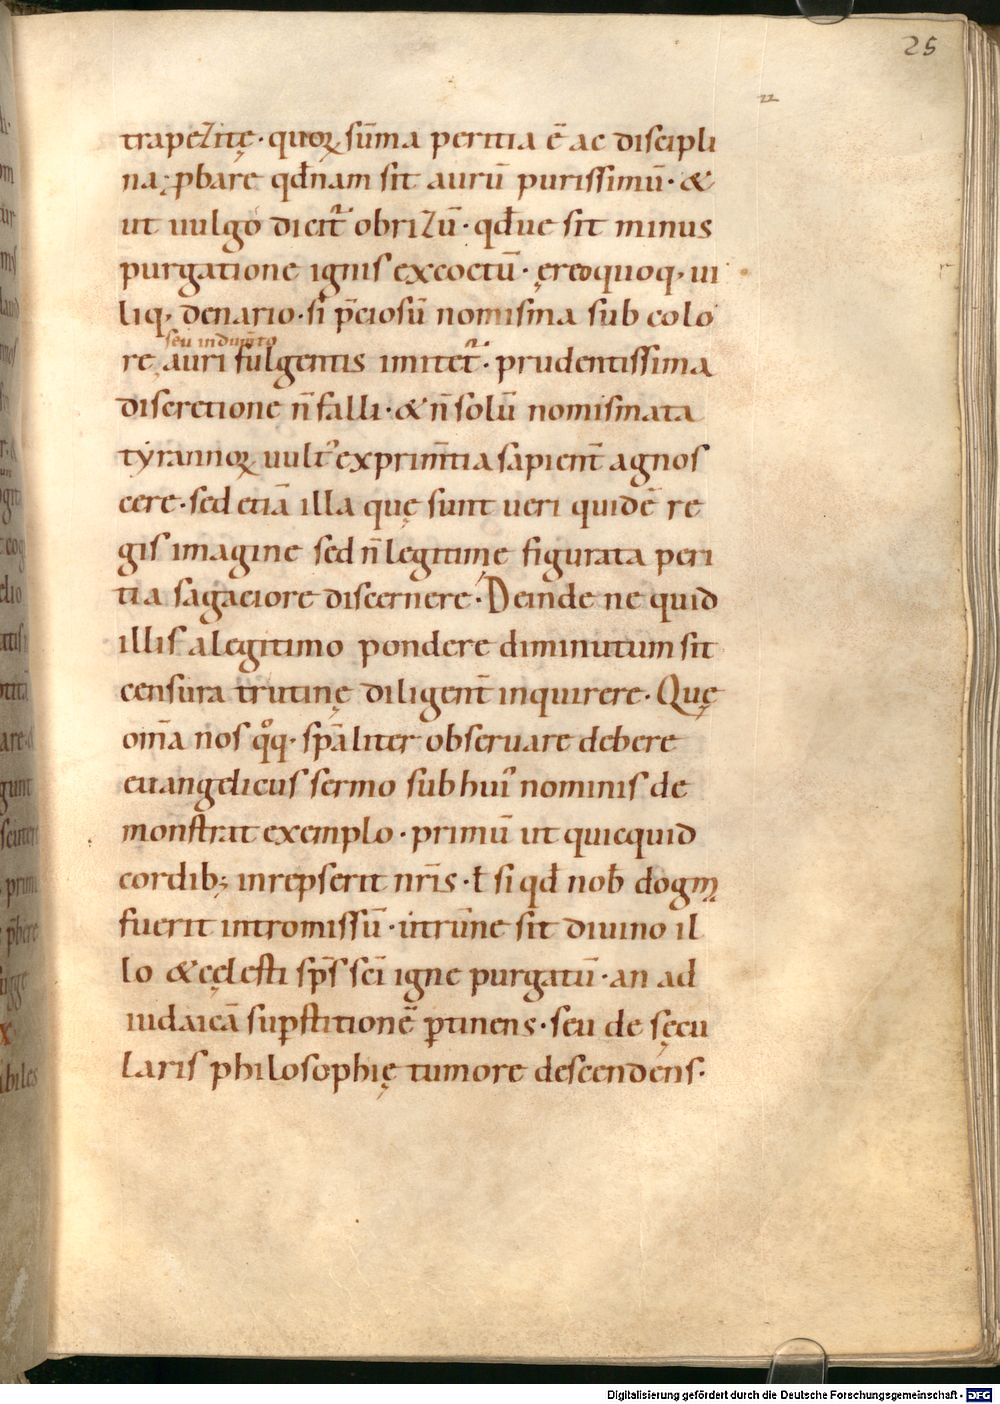 25
trapezitę · quoꝝ sūma peritia ē ac discipli
na · ꝓbare qđnam sit aurū purissimū · &
ut uulgo dicit᷑ obrizū · qđue sit minus
purgatione ignis excoctū · ęreo quoq, ui
liq, denario · si p̄ciosū nomisma sub colo
seu indumto
re auri fulgentis imitet᷑ · prudentissima
discretione n̄ falli · & n̄ solū nomismata
tyrannoꝝ uult᾽ exprim̄tia sapient̄ agnos
cere · sed etiā illa quę sunt ueri quidē re
gis imagine sed n̄ legitime figurata peri
tia sagaciore discernere · Deinde ne quid
illis a legitimo pondere diminutum sit
censura trutinę diligent̄ inquirere · Quę
om̄a nos qͦq · sp̄aliter obseruare debere
euangelicus sermo sub hui᾽ nominis de
monstrat exemplo · primū ut quicquid
cordib; inrepserit nr̄is · ł si qđ nob̄ dogma
fuerit intromissū · utrūne sit diuino il
lo & cęlesti sp̄s sc̄i igne purgatū · an ad
iudaicā suꝑstitionē ꝑtinens · seu de sęcu
laris philosophię tumore descendens ·
Digitalisierung gefördert durch die Deutsche Forschungsgemeinschaft - DFG